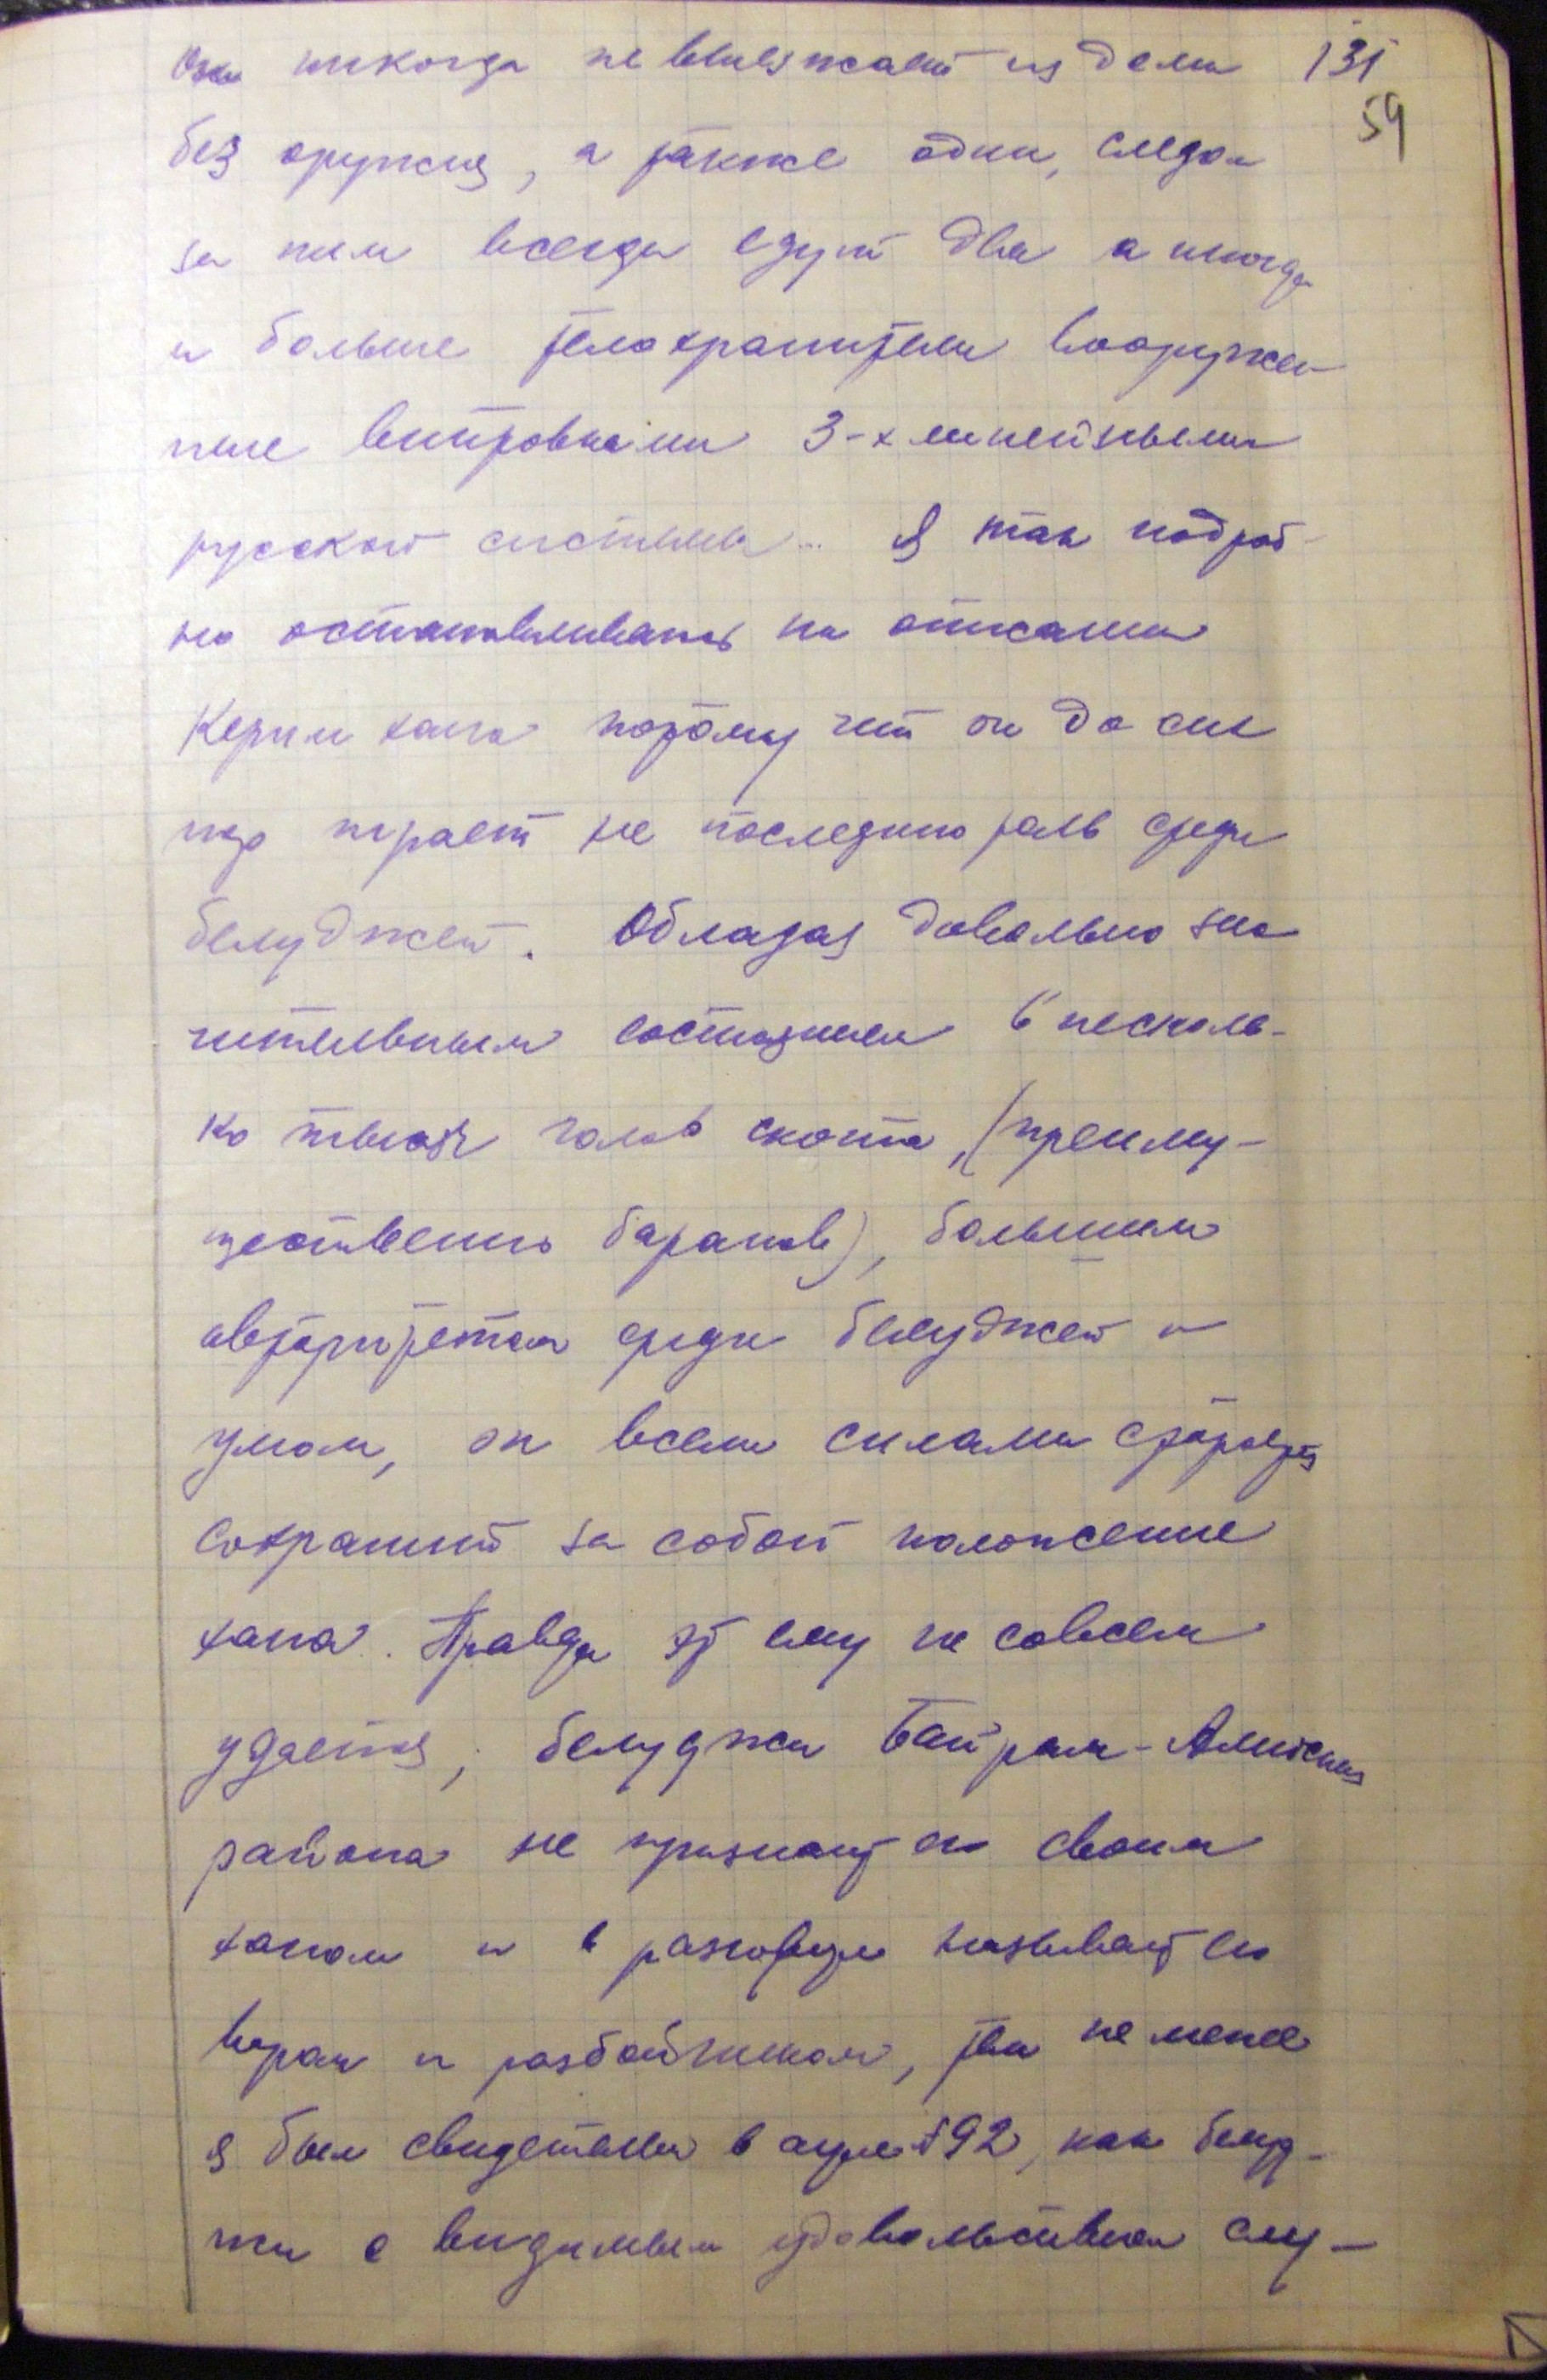 Они никогда не выезжают из дома 131
59
без оружия, а также одни, следом
за ним всегда едут два а иногда
и больше телохранители вооружен-
ные винтовками 3-х линейными
русской системы... Я так подроб-
но останавливаюсь на описании
Керим хана потому что он до сих
пор играет не последнюю роль среди
белуджей. Обладая довольно зна
чительным состоянием в несколь-
ко тысяч голов скота, (преиму-
щественно баранов), большим
авторитетом среди белуджей и
умом, он всеми силами старается
сохранить за собой положение
хана. Правда эт ему не совсем
удается, белуджи Байрам-Алийских
района не признают его своим
ханом и в разговоре называют его
вором и разбойником, тем не менее
я был свидетелем в ауле 92, как белуд-
жи с видимым удовольствием слу-